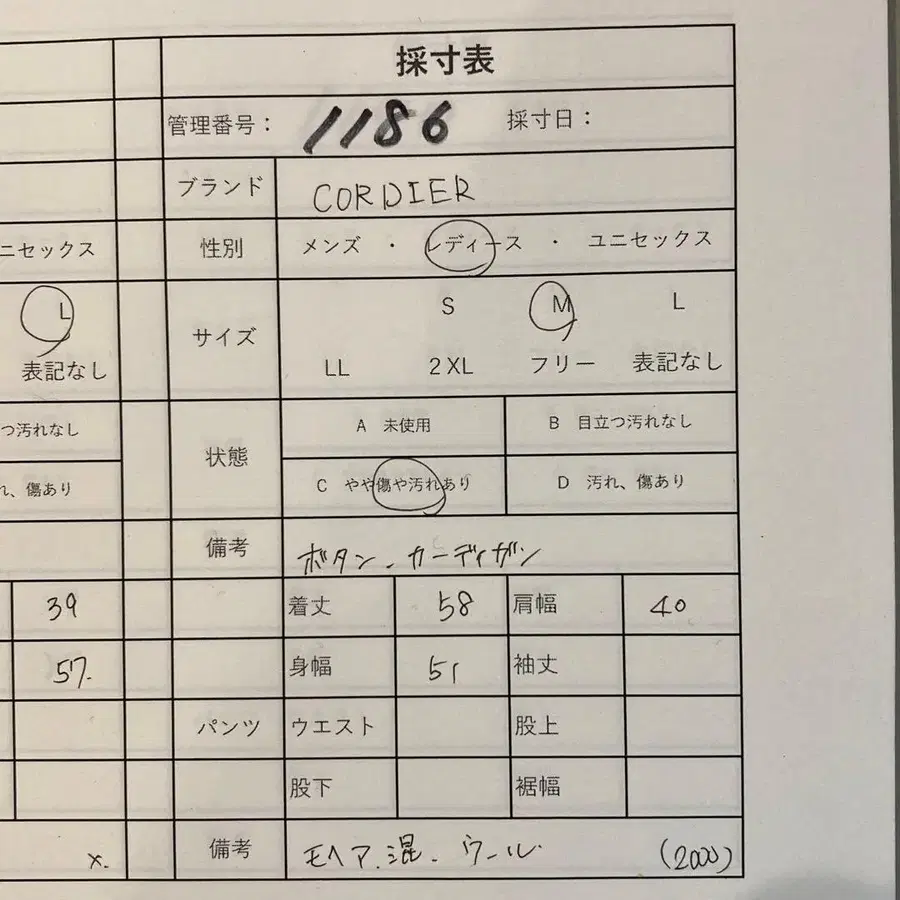 採寸表
管理番号： 1186 採寸日：
ブランド CORDIER
ニセックス 性別 メンズ ・ レディース ・ ユニセックス
L S M L
サイズ
表記なし LL 2XL フリー 表記なし
つ汚れなし A 未使用 B 目立つ汚れなし
状態
れ、傷あり C やや傷や汚れあり D 汚れ、傷あり
備考 ボタン、カーディガン
39 着丈 58 肩幅 40
57. 身幅 51 袖丈
パンツ ウエスト 股上
股下 裾幅
x. 備考 モヘア.混、ウール (2000)